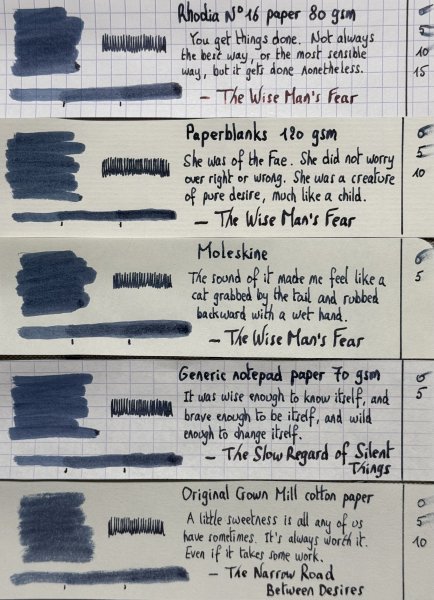 Rhodia N°16 paper 80 gsm
You get things done. Not always
the best way, or the most sensible
way, but it gets done nonetheless.
— The Wise Man's Fear
0
5
10
15
Paperblanks 120 gsm
She was of the Fae. She did not worry
over right or wrong. She was a creature
of pure desire, much like a child.
— The Wise Man's Fear
0
5
10
Moleskine
The sound of it made me feel like a
cat grabbed by the tail and rubbed
backward with a wet hand.
— The Wise Man's Fear
0
5
Generic notepad paper 70 gsm
It was wise enough to know itself, and
brave enough to be itself, and wild
enough to change itself.
— The Slow Regard of Silent
Things
0
5
Original Crown Mill cotton paper
A little sweetness is all any of us
have sometimes. It's always worth it.
Even if it takes some work.
— The Narrow Road
Between Desires
0
5
10